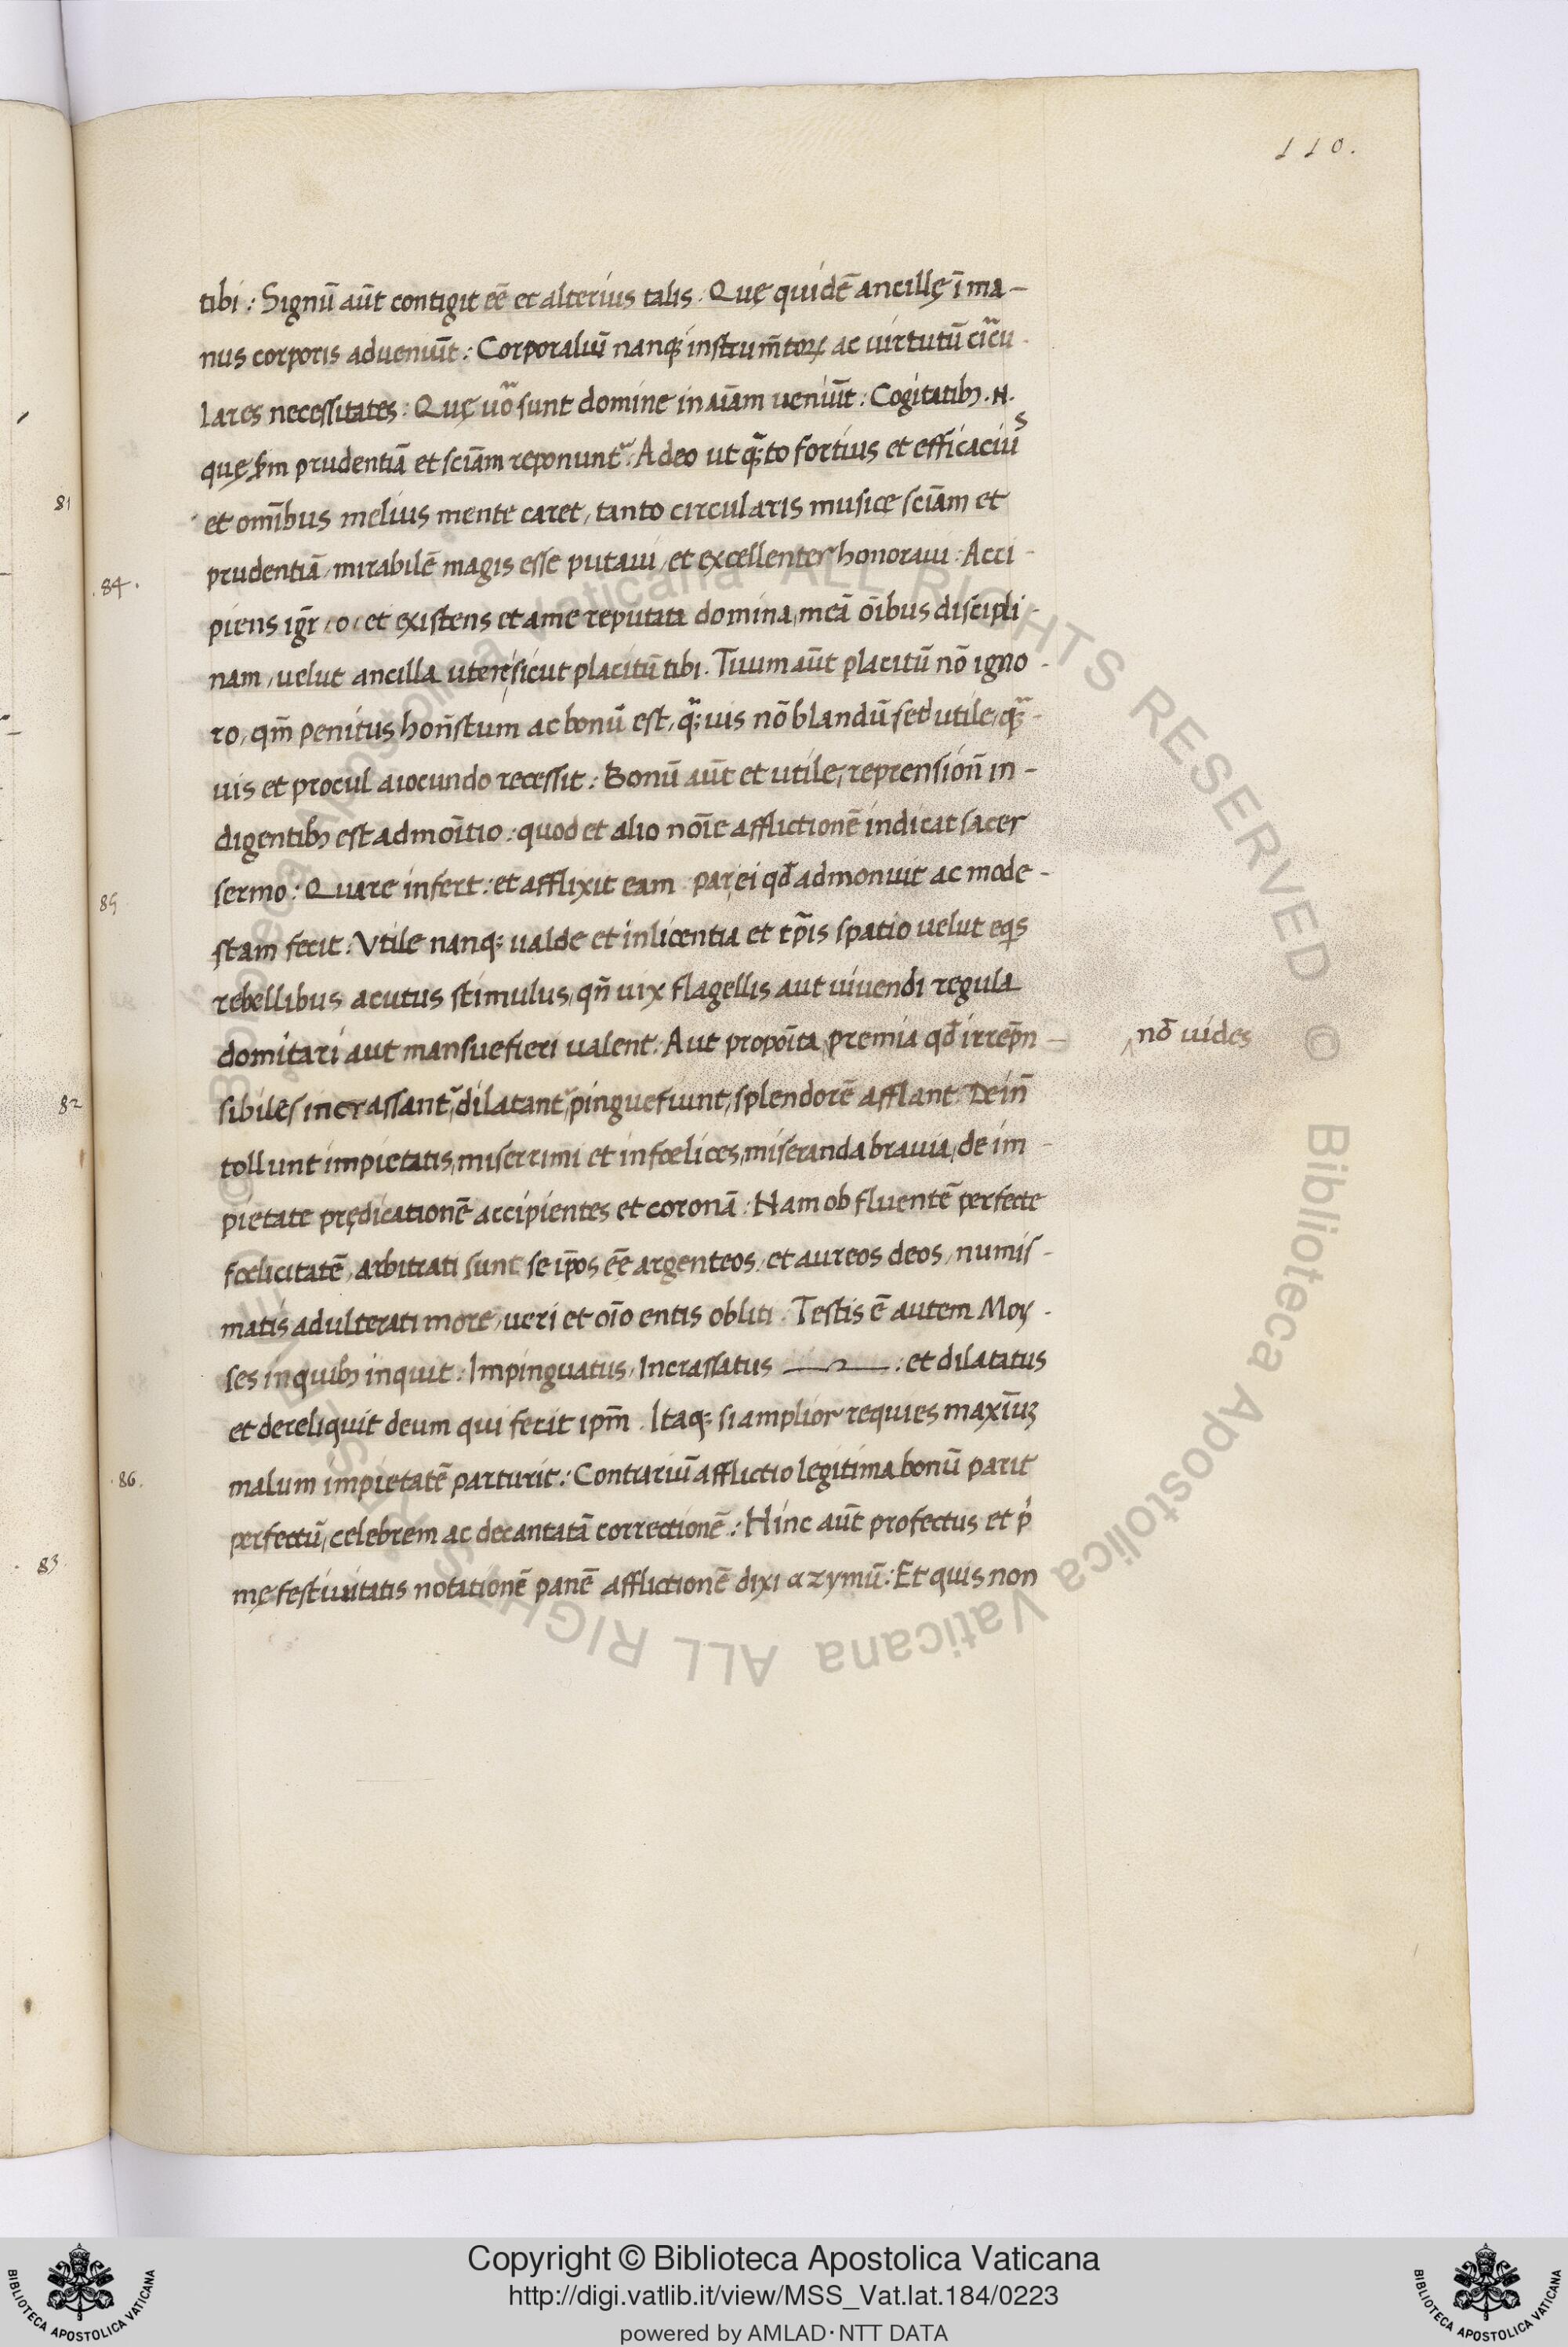 110.
tibi : Signū aūt contigit eē et alterius talis . Quę quidē ancillę ī ma-
nus corporis adveniūt : Corporaliū nanq; instrum̄toꝝ ac virtutū circu-
lares necessitates : Quę uo sunt domine in aīam veniūt : Cogitatiƀ . N .
quę scm prudentiā et sciam reponunt : Adeo ut q̄to fortius et efficacius
81
et omībus melius mente caret , tanto circularis musice sciam et
prudentiā , mirabilē magis esse putavi , et excellenter honoravi : Acci-
84.
piens igr o et existens et ame reputata domina , meā oībus discipli-
nam , velut ancilla utere , sicut placitū tibi . Tuum aūt placitū nō igno-
ro , qm̄ penitus honstum ac bonū est , q̄vis nō blandū sed utile , q̄-
vis et procul aiocundo recessit : Bonū aūt et utile , reprensiōn in-
digentiƀ est admoītio : quod et alio noīe afflictionē indicat sacer
sermo : Quare infert : et afflixit eam par ei qd admonuit ac mode-
85
stam fecit : Vtile nanq; valde et in licentia et tpis spatio velut eqis
rebellibus acutus stimulus , qn̄ vix flagellis aut vivendi regula
domitari aut mansuefieri valent : Aut propoīta premia qd irrepn-
nō vides
82
sibiles incrassant , dilatant , pinguefiunt , splendorē afflant : Dein̄
tollunt impietatis , miserrimi et infœlices , miseranda bravia , de im-
pietate prędicationē accipientes et coronā : Nam ob fluentē perfecte
fœlicitatē , arbitrati sunt se ipos eē argenteos , et aureos deos , numis-
matis adulterati more , veri et oīo entis obliti . Testis ē autem Moy-
ses in quiƀ inquit : Impinguatus , Incrassatus : et dilatatus
et dereliquit deum qui fecit ipm̄ . Itaq; si amplior requies maxīuꝫ
malum impietatē parturit : Contrariū afflictio legitima bonū parit
86.
perfectū , celebrem ac decantatā correctionē : Hinc aūt profectus et p̍
83
mę festivitatis notationē panē afflictionē dixi azymū : Et quis non
© Biblioteca Apostolica Vaticana ALL RIGHTS RESERVED
Copyright © Biblioteca Apostolica Vaticana
http://digi.vatlib.it/view/MSS_Vat.lat.184/0223
powered by AMLAD·NTT DATA
BIBLIOTECA APOSTOLICA VATICANA
BIBLIOTECA APOSTOLICA VATICANA